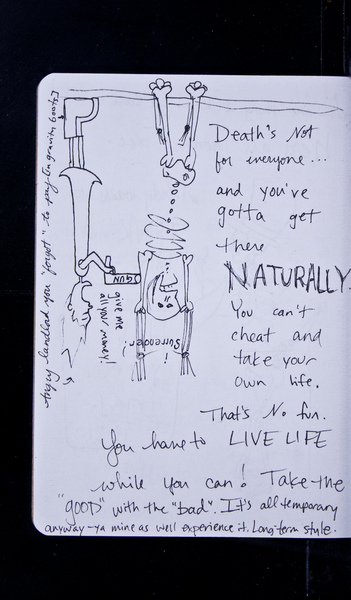 Death's Not
for everyone...
and you've
gotta get
there
NATURALLY.
You can't
cheat and
take your
own life.
That's No fun.
You have to LIVE LIFE
while you can! Take the
"good" with the "bad". It's all temporary
anyway-ya mine as well experience it. Long-term style.
GUN
give me
all your money!
i
Surrender!
Angry landlord you "forgot" to pay in gravity boots